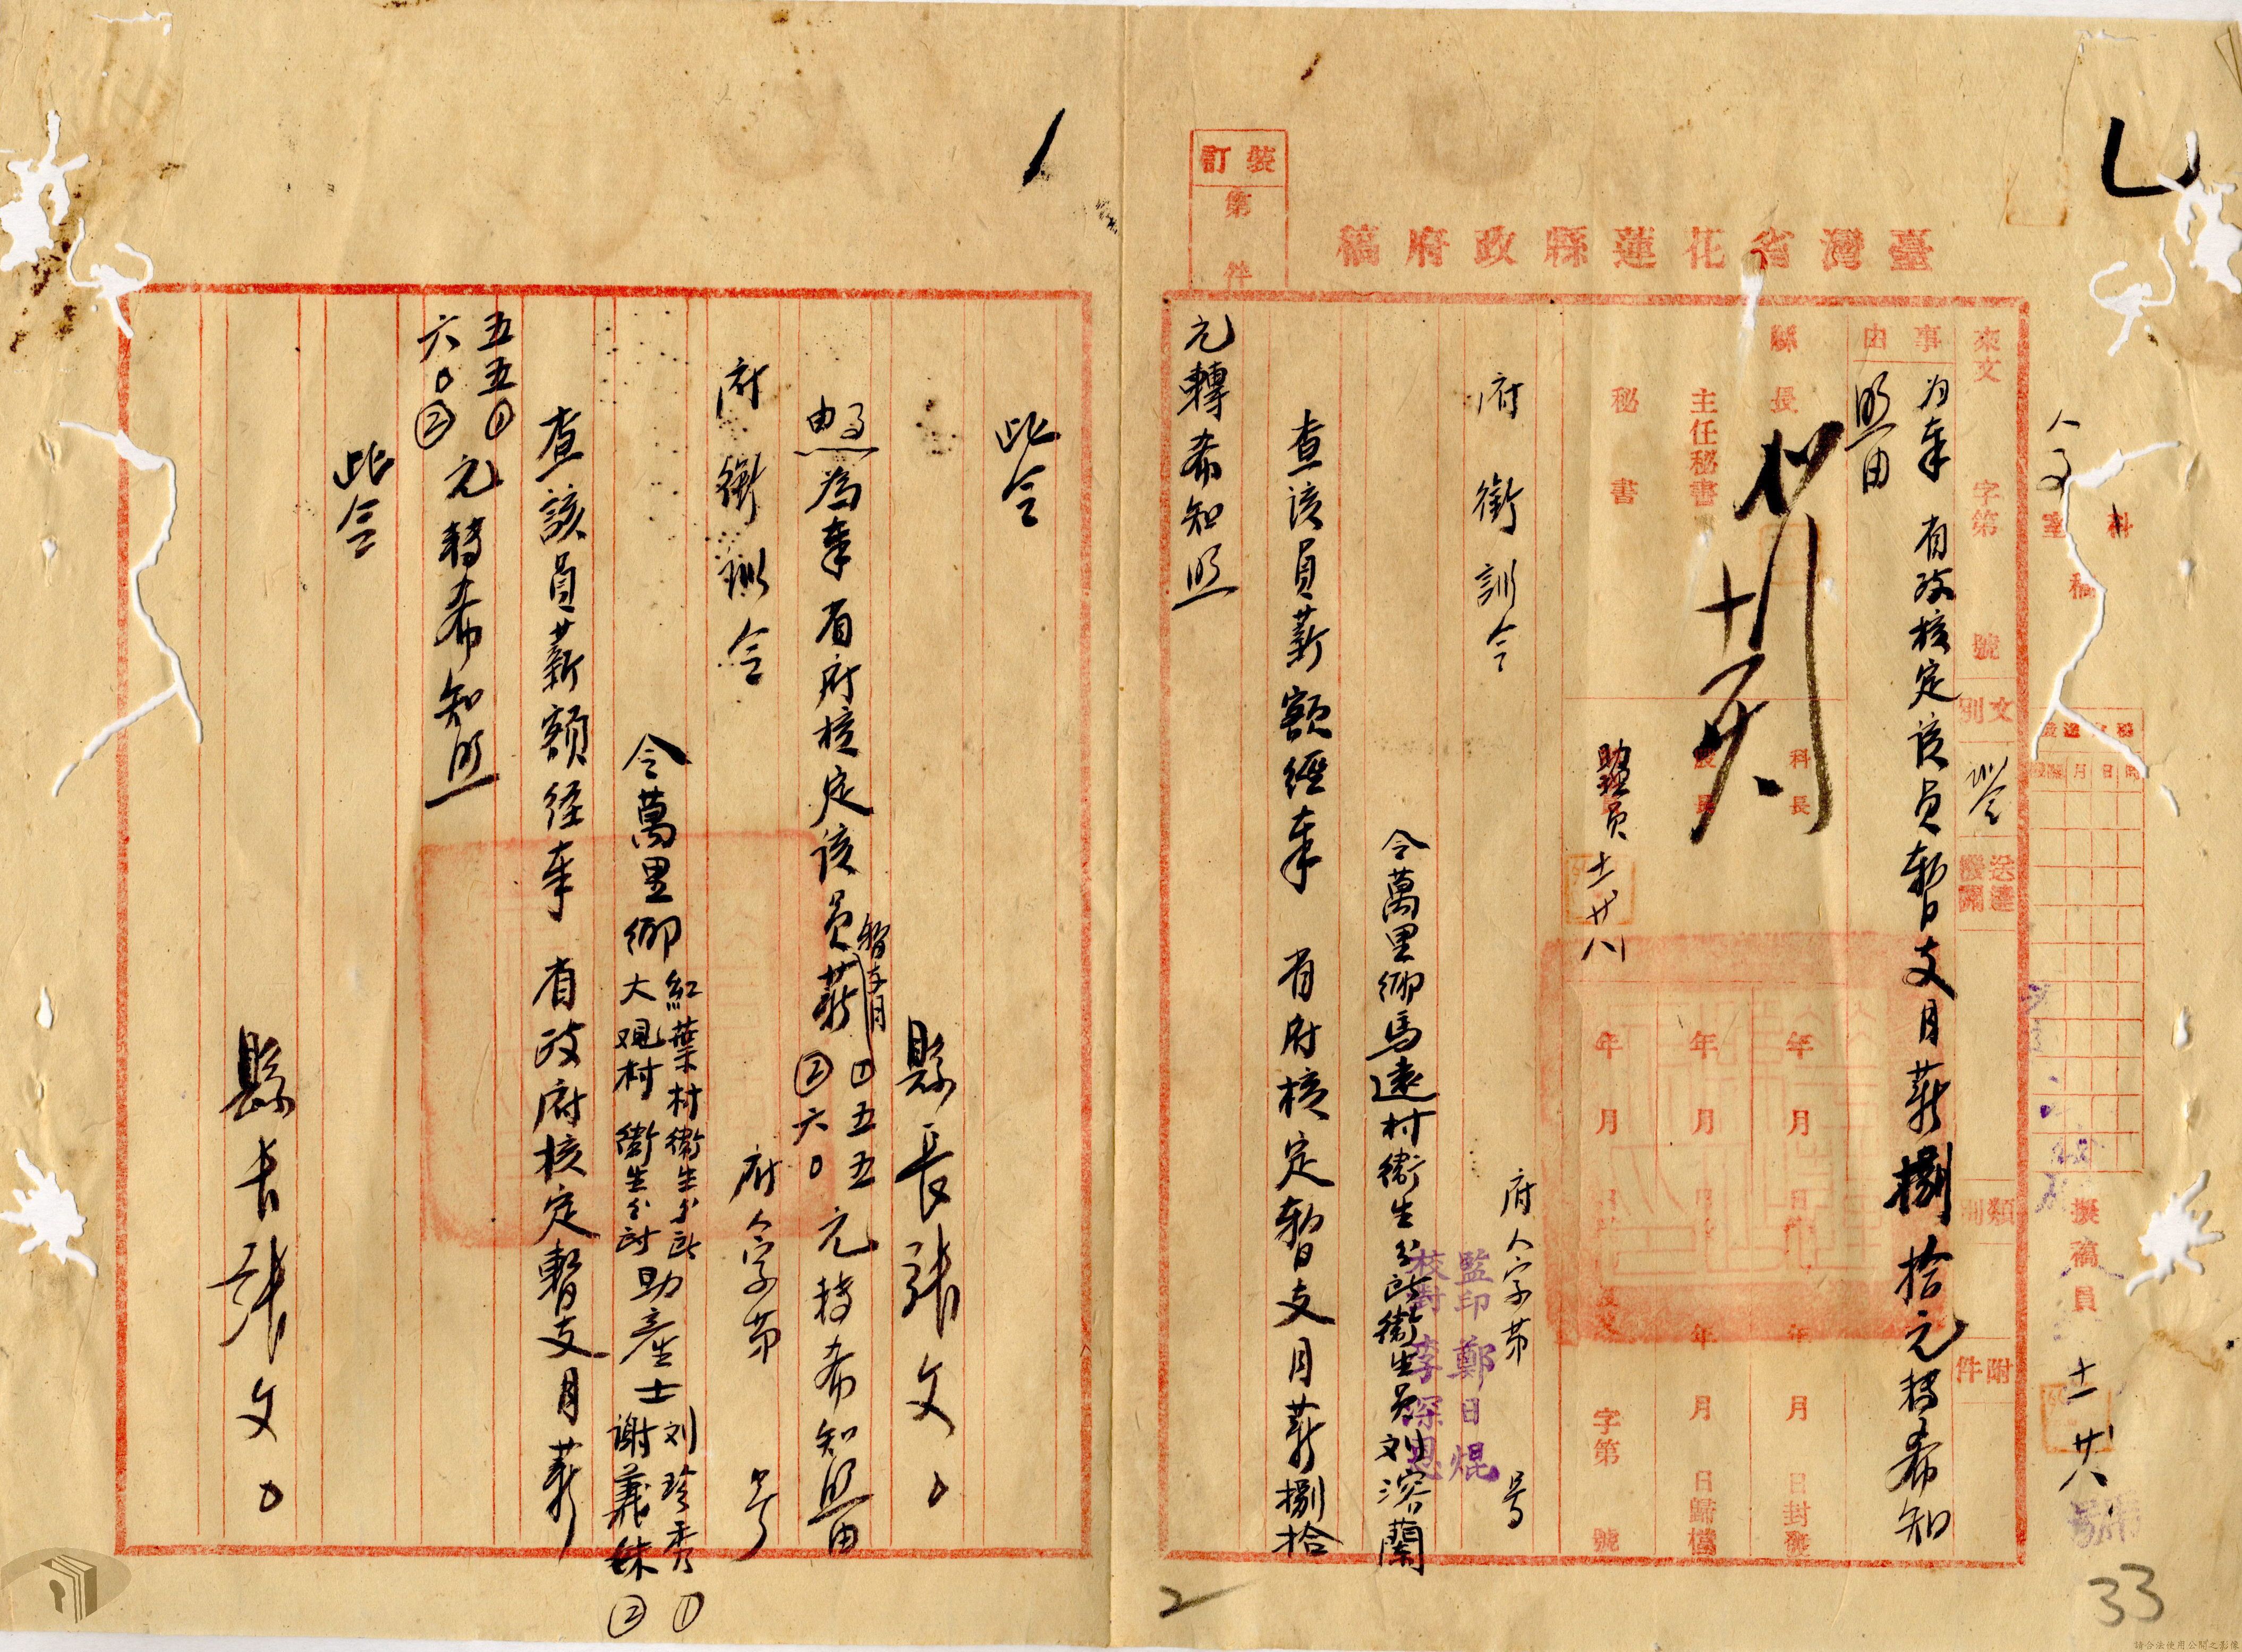 臺灣省花蓮縣政府稿
裝訂
第 件
科
室
稿
擬稿員 十一 廿八
來文 字第 號
文別
送達機關
類別
附件
事由
為奉 省政核定該員暫支月薪捌拾元轉希知
照由
縣長
主任秘書
秘書
科長
年 月 日
年 月 日封發
年 月 日歸檔
字第 號
助理員 十一 廿八
府人字第 号
府銜訓令
監印 鄭日焜
校對 李深恩
令萬里鄉馬遠村衛生分所衛生員刘溶蘭
查該員薪額經奉 省府核定暫支月薪捌拾
元轉希知照
此令
縣長張文〇
為奉省府核定該員暫支月薪①五五②六〇元轉希知照由
府銜訓令
府人字第 号
令萬里鄉紅葉村衛生分所大观村衛生分所助產士刘珍秀①謝義妹②
查該員薪額經奉 省政府核定暫支月薪
五五①
六〇②元轉希知照
此令
縣長張文〇
2
33
請合法使用公開之影像